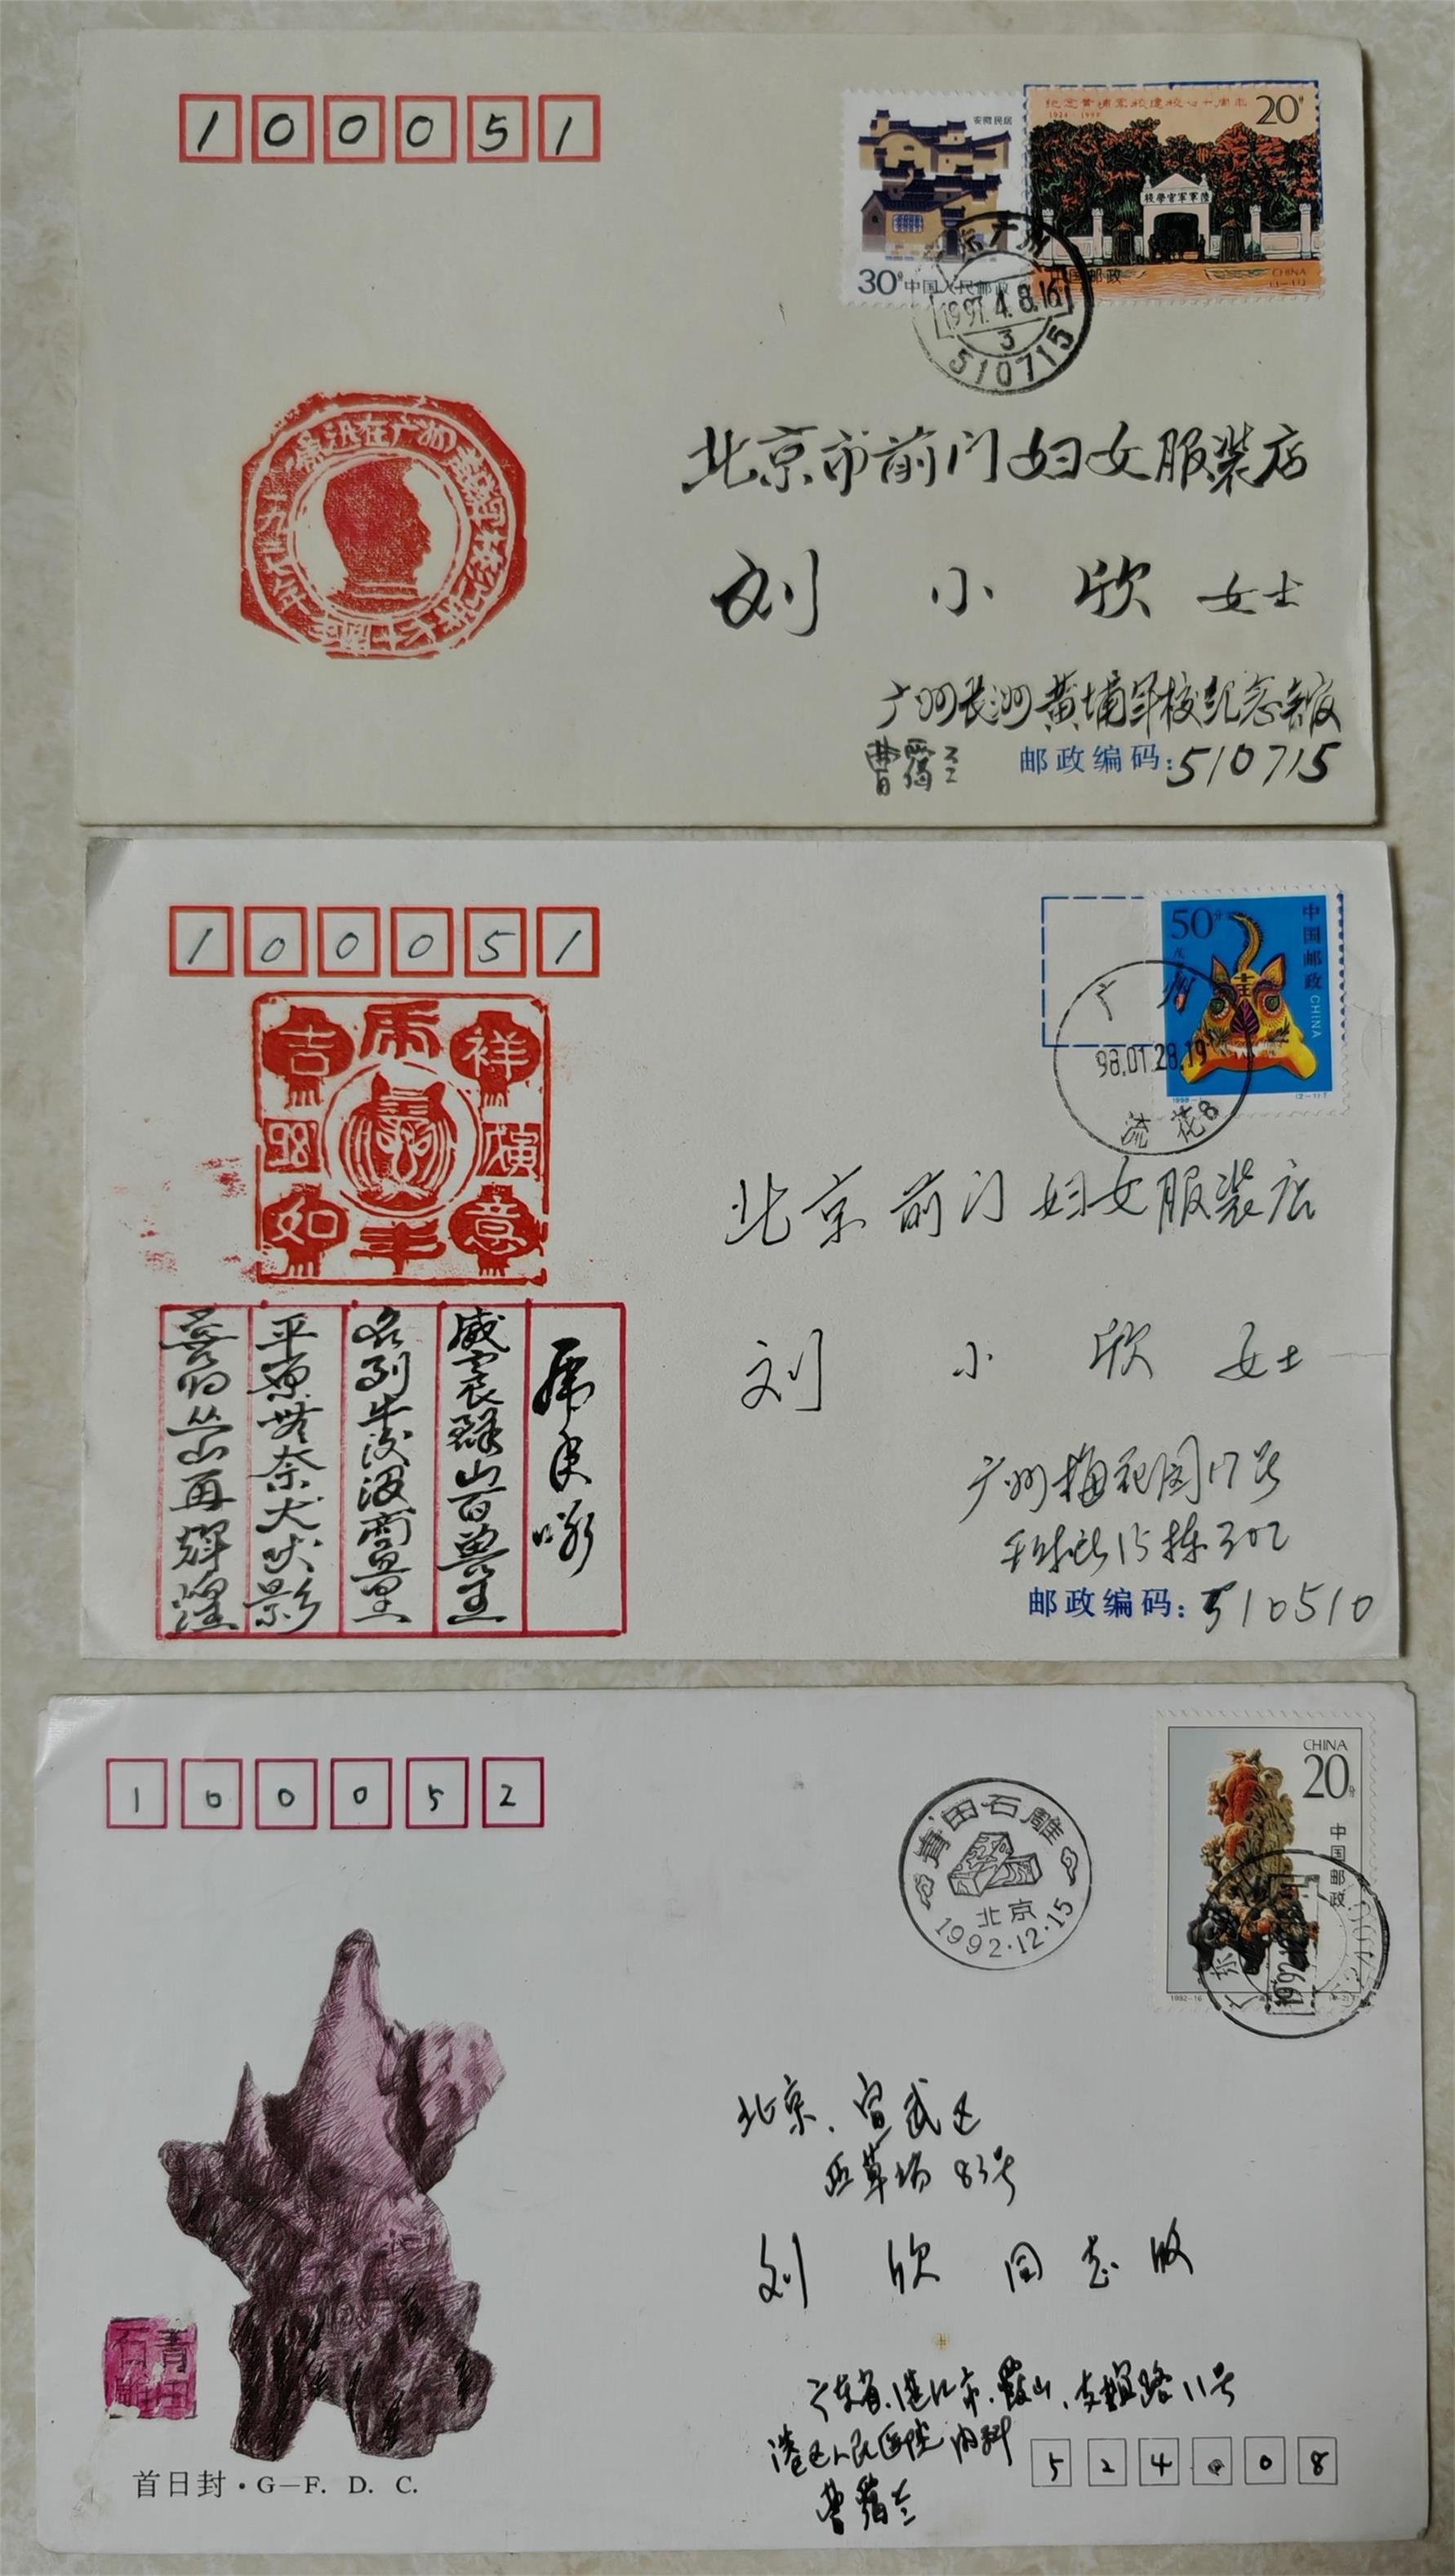 100051
安徽民居
30分中国人民邮政
纪念黄埔军校建校七十周年
1924-1994
20分
陸軍軍官學校
中国邮政
CHINA
(1-1)J
广州
1997.4.8.16
3
510715
鲁迅在广州 黄埔军校演讲七十周年
一九二七年
北京市前门妇女服装店
刘小欣 女士
广州长洲黄埔军校纪念馆
曹
邮政编码:510715
100051
50分
中国邮政
CHINA
(2-1)T
广州
98.01.28.19
流花8
吉 虎 祥
98 寅
如 年 意
虎
威震群山百兽王
名列牛后没商量
平原无奈犬吠影
喜归丛山再辉煌
北京前门妇女服装店
刘小欣 女士
广州梅花园17号
15栋302
邮政编码:510510
100052
CHINA
20分
中国邮政
1992-16
青田石雕
北京
1992.12.15
广东
1992
北京、宣武区
西草场83号
刘欣同志收
广东省、湛江市、霞山、友谊路11号
港区人民医院内科
曹
524008
青田
石雕
首日封·G—F. D. C.